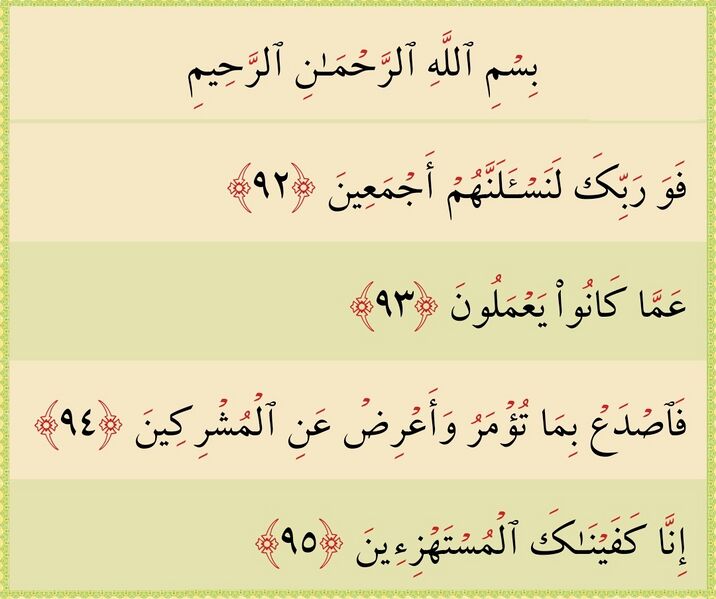 بِسْمِ ٱللَّهِ ٱلرَّحْمَـٰنِ ٱلرَّحِيمِ
فَوَ رَبِّكَ لَنَسْـَٔلَنَّهُمْ أَجْمَعِينَ ﴿٩٢﴾
عَمَّا كَانُوا۟ يَعْمَلُونَ ﴿٩٣﴾
فَٱصْدَعْ بِمَا تُؤْمَرُ وَأَعْرِضْ عَنِ ٱلْمُشْرِكِينَ ﴿٩٤﴾
إِنَّا كَفَيْنَـٰكَ ٱلْمُسْتَهْزِءِينَ ﴿٩٥﴾